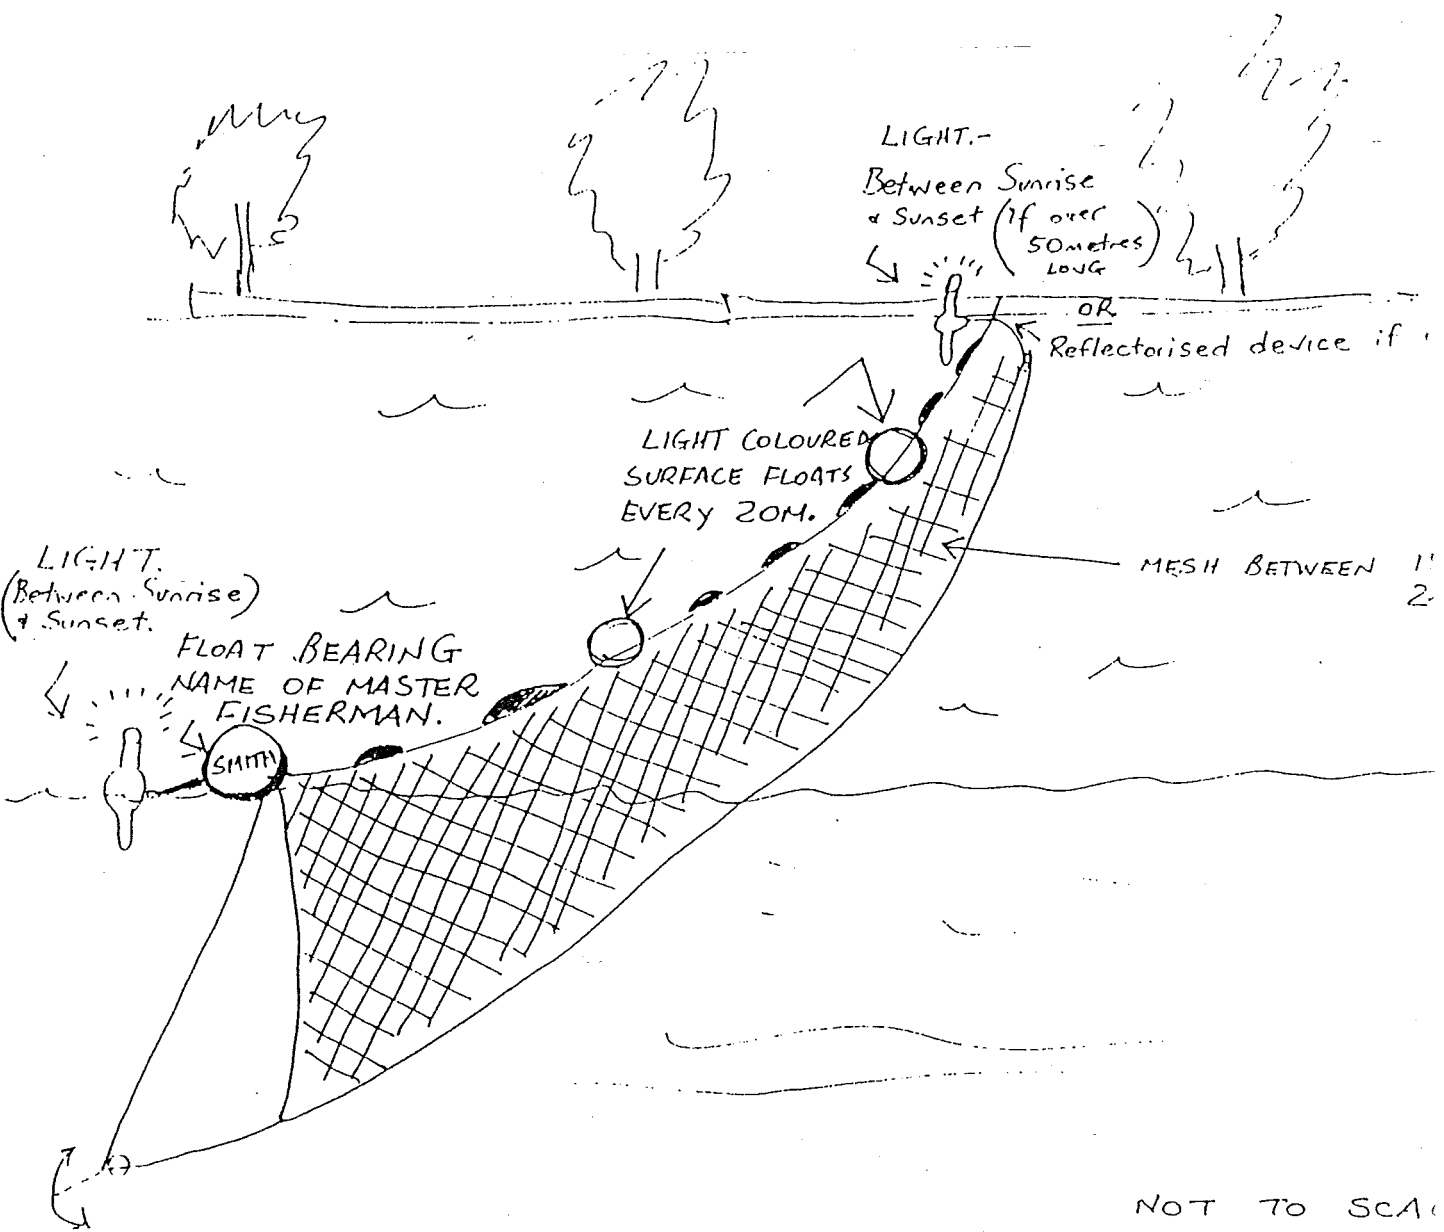 LIGHT.-
Between Sunrise
& Sunset (If over
50 metres)
LONG
OR
Reflectorised device if
LIGHT COLOURED
SURFACE FLOATS
EVERY 20M.
MESH BETWEEN
LIGHT.
(Between Sunrise)
& Sunset.
FLOAT BEARING
NAME OF MASTER
FISHERMAN.
SMITH
NOT TO